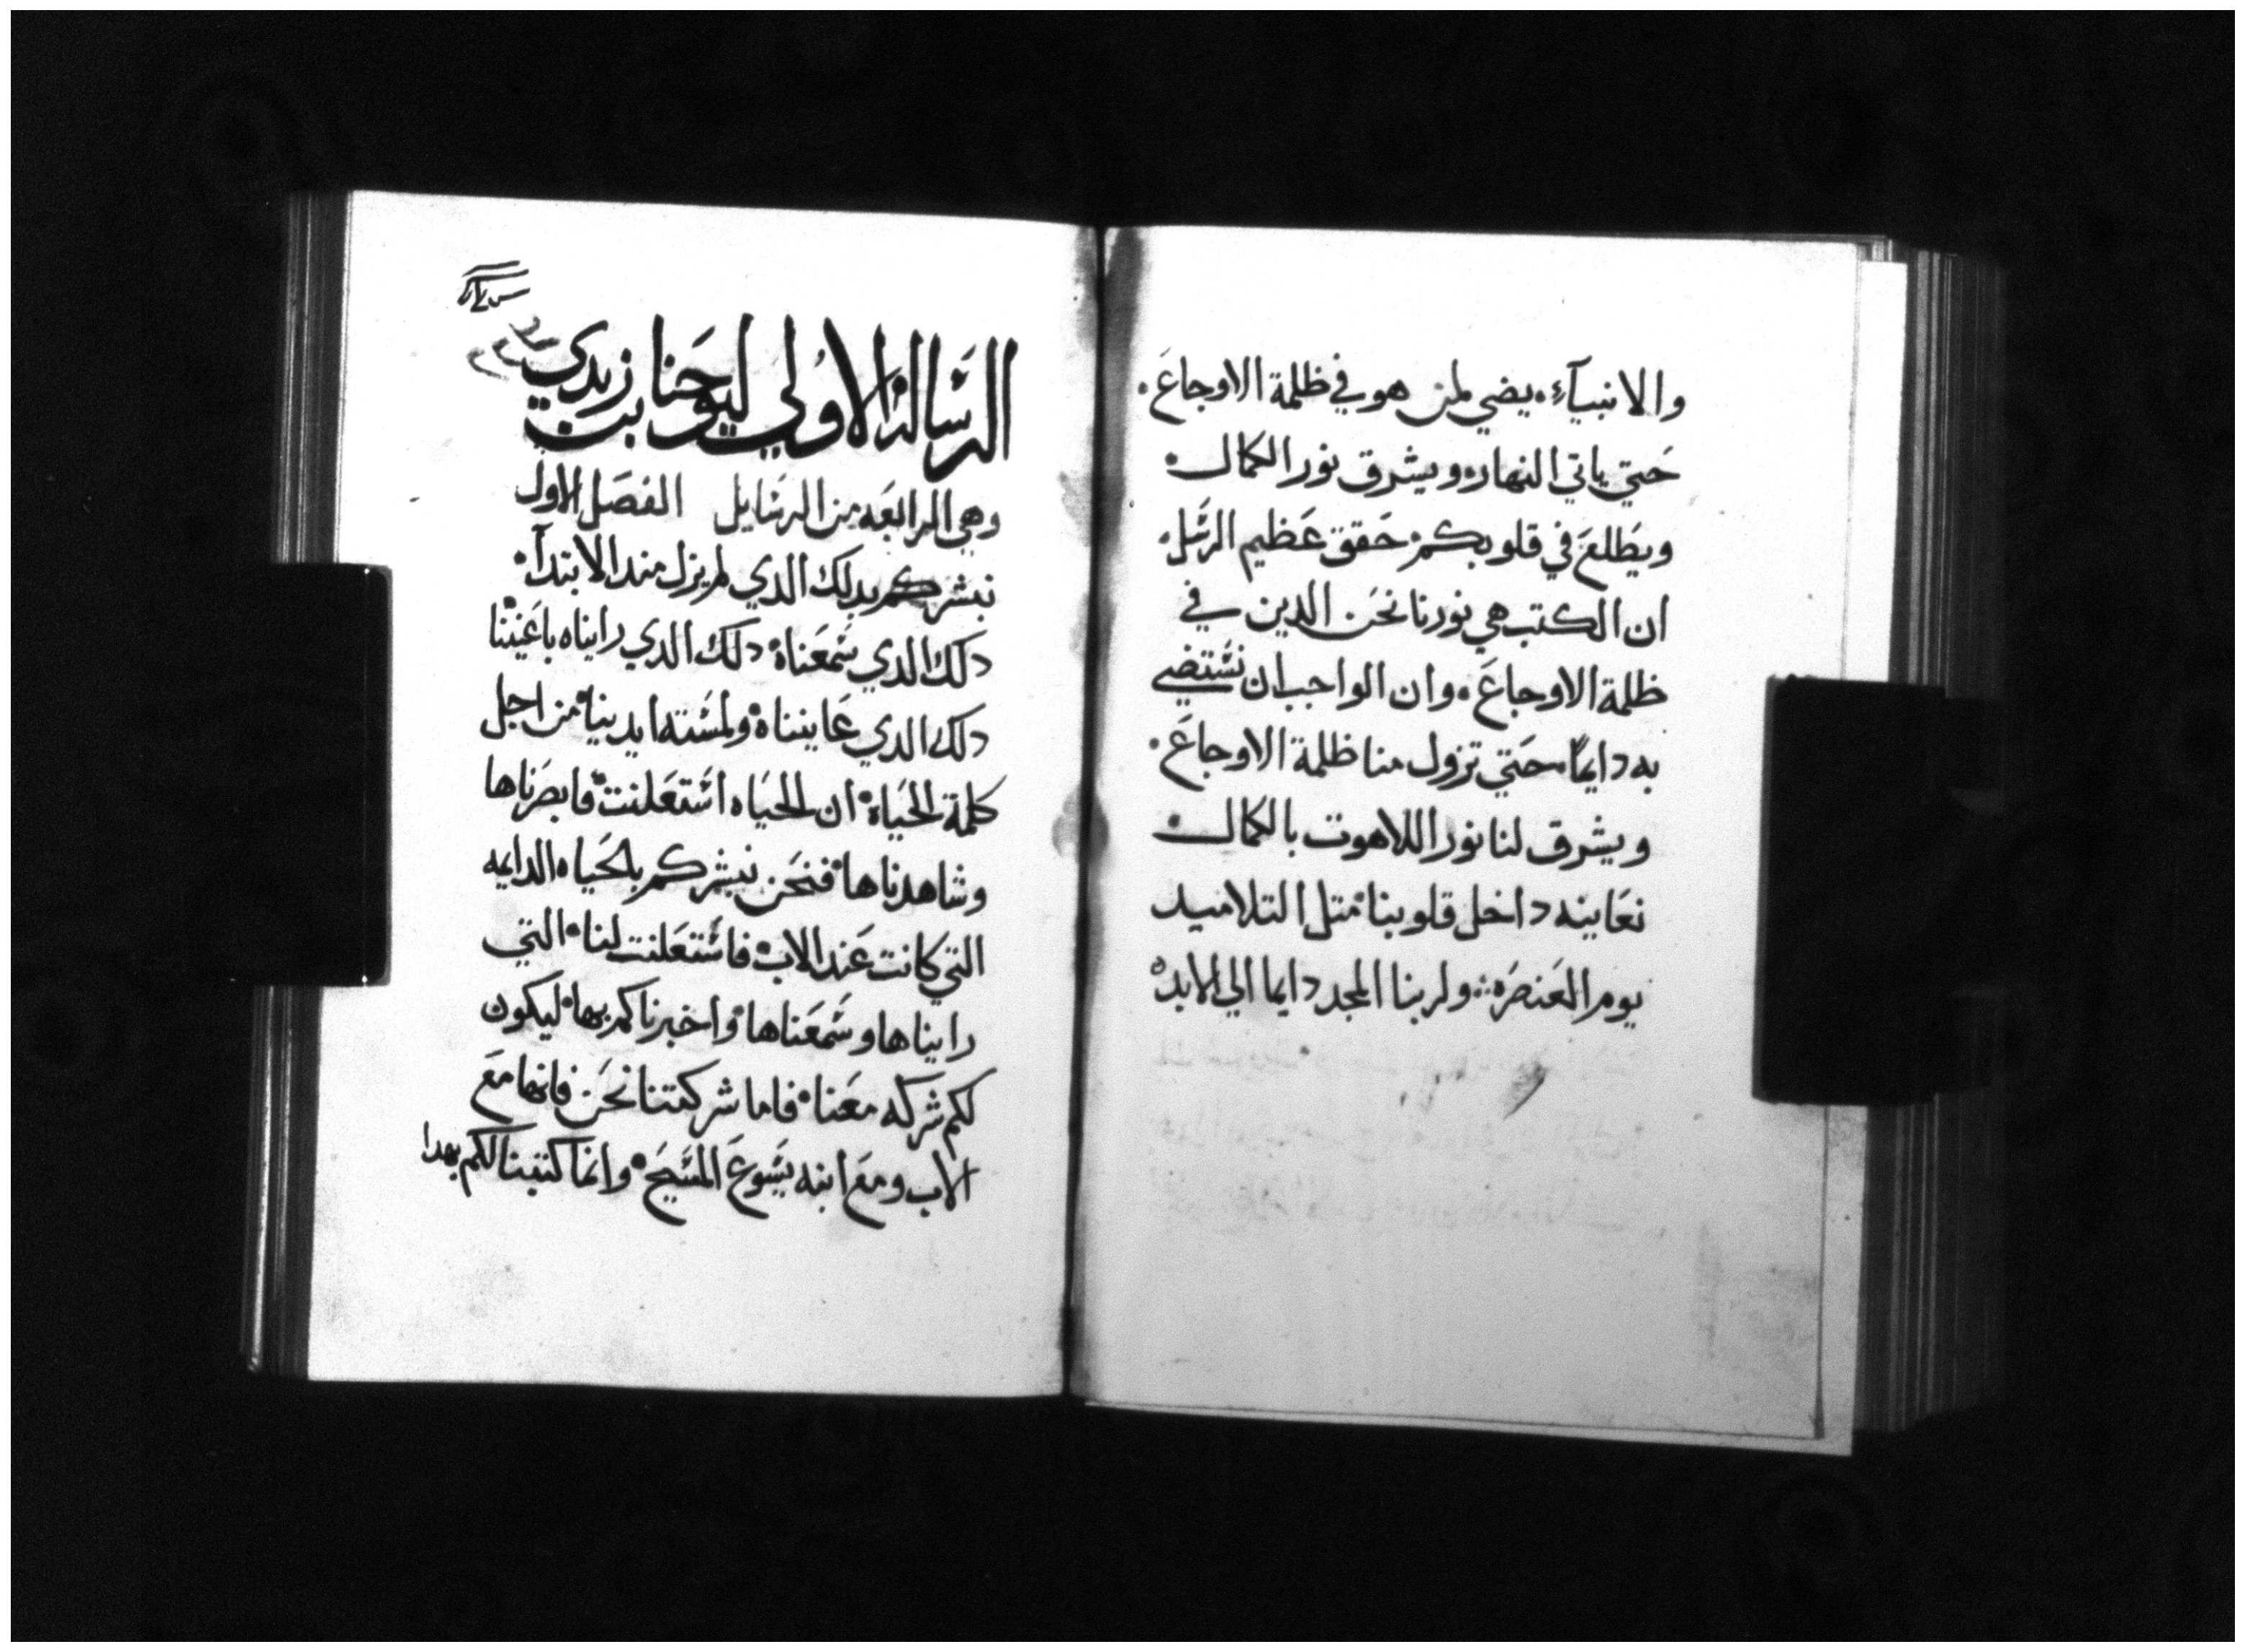 والانبيآء. يضي لمن هو في ظلمة الاوجاع.
حتي ياتي النهار. ويشرق نور الكمال.
ويطلع في قلوبكم. حقق عظيم الرسل.
ان الكتب هي نورنا نحن الدين في
ظلمة الاوجاع. وان الواجب ان نستضي
به دايمًا. حتي تزول منا ظلمة الاوجاع.
ويشرق لنا نور اللاهوت بالكمال.
نعاينه داخل قلوبنا. متل التلاميد
يوم العنصره ∴ ولربنا المجد دايما الي الابد.
الرساله الاولي ليوحنا بن زبدي
وهي الرابعه من الرسايل الفصل الاول
نبشركم بدلك الدي لم يزل مند الابتدآ.
دلك الدي سمعناه. دلك الدي رايناه باعيننا
دلك الدي عايناه. ولمسته ايدينا. من اجل
كلمة الحياة. ان الحياه استعلنت. فابصرناها
وشاهدناها. فنحن نبشركم بالحياه الدايمه
التي كانت عند الاب. فاستعلنت لنا. التي
رايناها وسمعناها. واخبرناكم بها. ليكون
لكم شركه معنا. فاما شركتنا نحن فانها مع
الاب ومع ابنه يسوع المسيح. وانما كتبنا لكم بهدا